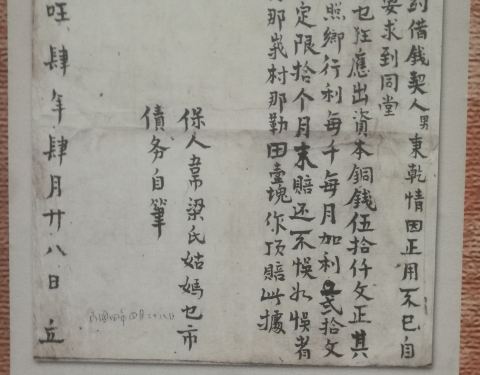 借錢契人男東乾情因正用不已自
要求到同堂
乜狂應出資本銅錢伍拾仟文正其
照鄉行利每千每月加利弍拾文
定限拾个月末賠還不悞如悞者
那峩村那勒田壹塊作頂賠此據
保人韋梁氏姑媽乜市
債务自筆
肆年肆月廿八日立